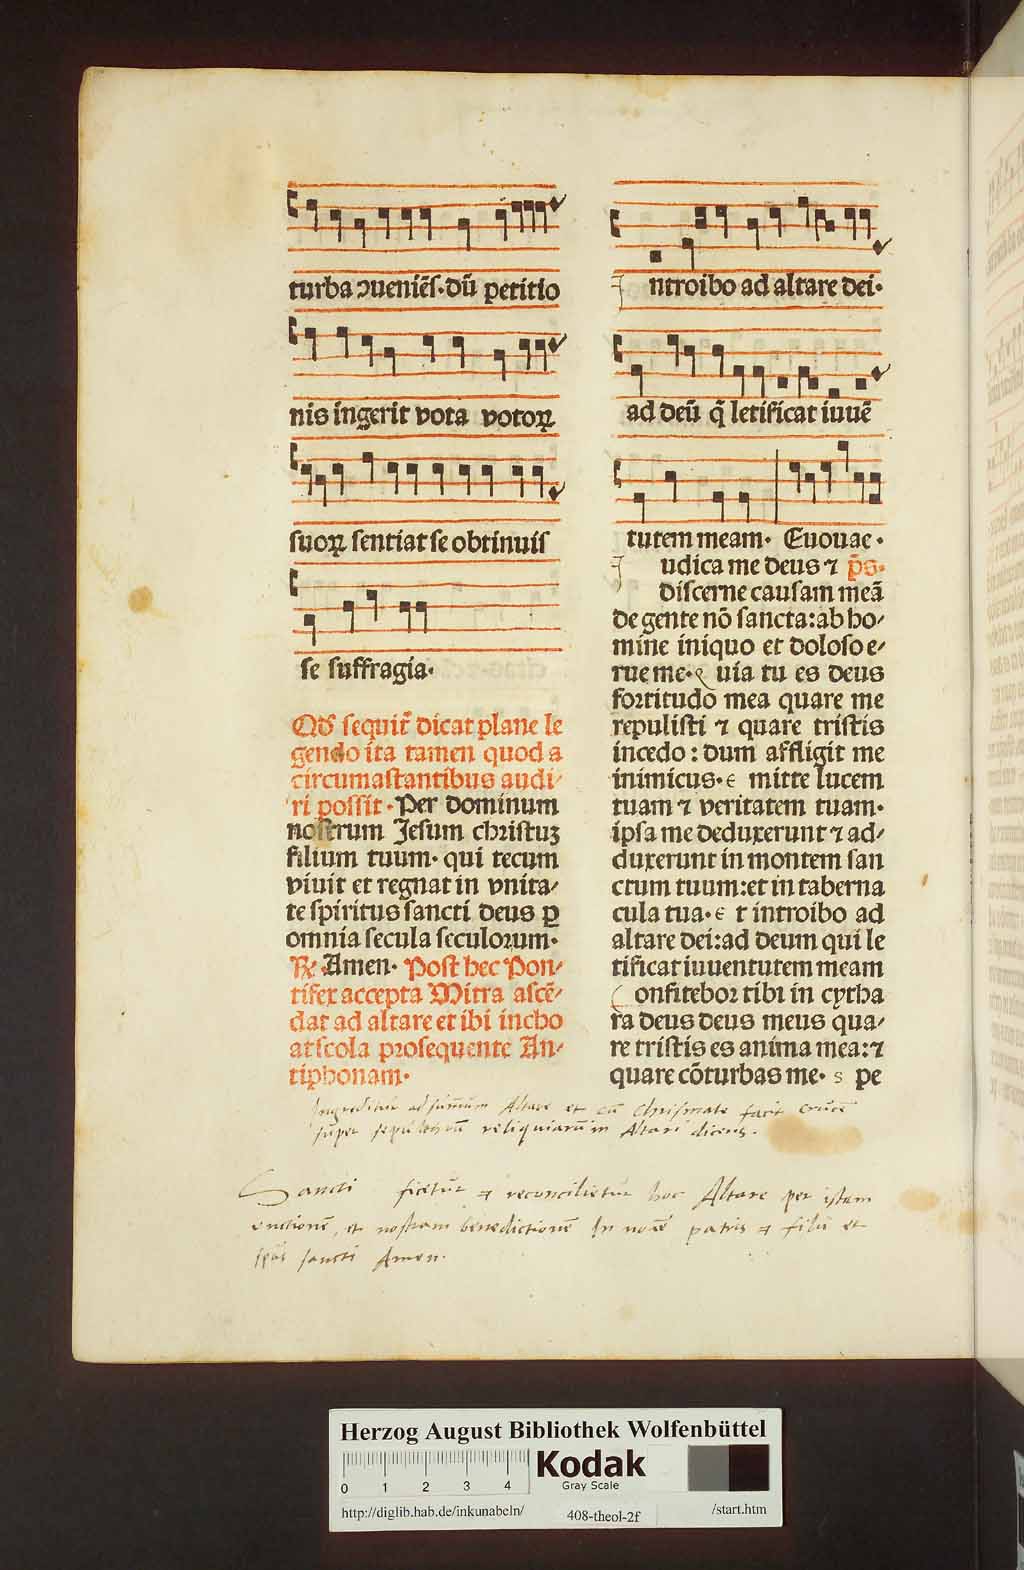 turba ↄueniēs·dū petitio
nis ingerit vota votoꝝ
suoꝝ sentiat se obtinuis
se suffragia·
Qđ sequit᷑ dicat plane le
gendo ita tamen quod a
circumastantibus audi⸗
ri possit · Per dominum
nostrum Jesum christuꝫ
filium tuum· qui tecum
viuit et regnat in vnita⸗
te spiritus sancti deus ꝑ
omnia secula seculorum·
℞ Amen· Post hec Pon⸗
tifex accepta Mitra ascē⸗
dat ad altare et ibi incho
at scola prosequente An⸗
tiphonam·
Introibo ad altare dei·
ad deū q̄ letificat iuuē
tutem meam· Euouae·
Judica me deus ⁊ p̄s·
discerne causam meā
de gente nō sancta:ab ho⸗
mine iniquo et doloso e⸗
rue me· Quia tu es deus
fortitudo mea quare me
repulisti ⁊ quare tristis
incedo : dum affligit me
inimicus· e mitte lucem
tuam ⁊ veritatem tuam·
ipsa me deduxerunt ⁊ ad⸗
duxerunt in montem san
ctum tuum:et in taberna
cula tua· e t introibo ad
altare dei:ad deum qui le
tificat iuuentutem meam
Confitebor tibi in cythа
ra deus deus meus qua⸗
re tristis es anima mea:⁊
quare cōturbas me· s pe
Ingreditur ad summum Altare et cū Chrismate facit crucē
super sepulchrū reliquiarum in Altari dicens.
Sancti ficetur ⁊ reconcilietur hoc Altare per istam
vnctionē, et nostram benedictionē In noīe patris ⁊ filii et
spūs sancti Amen.
Herzog August Bibliothek Wolfenbüttel
0 1 2 3 4
Kodak
Gray Scale
http://diglib.hab.de/inkunabeln/ 408-theol-2f /start.htm